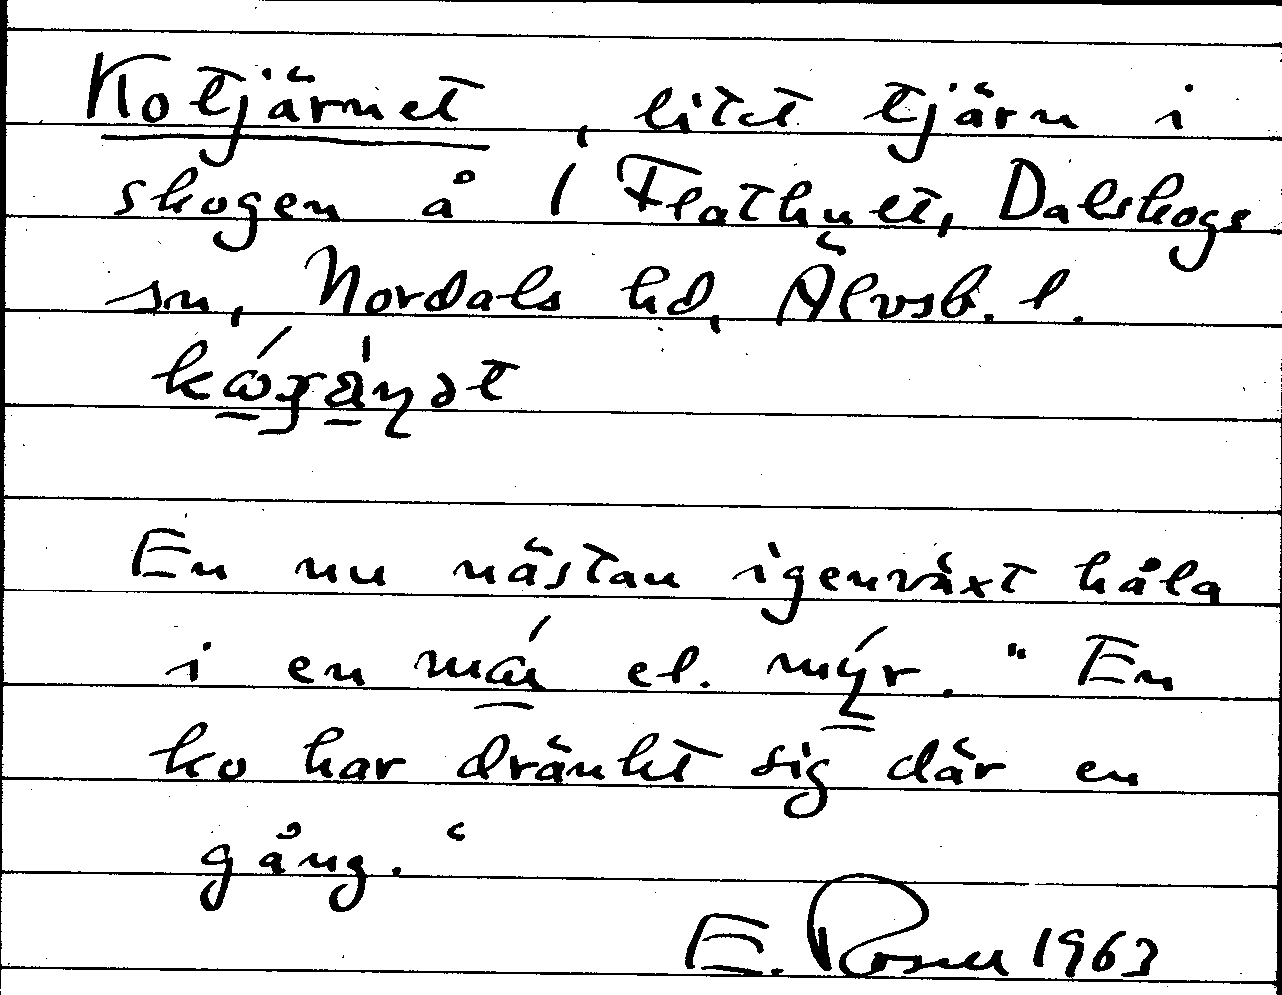 Kotjärnet, litet tjärn i
skogen å 1 Flathult, Dalskogs
sn, Nordals hd, Älvsb. l.
En nu nästan igenväxt håla
i en el. mýr. "En
ko har dränkt sig där en
gång."
E. 1963